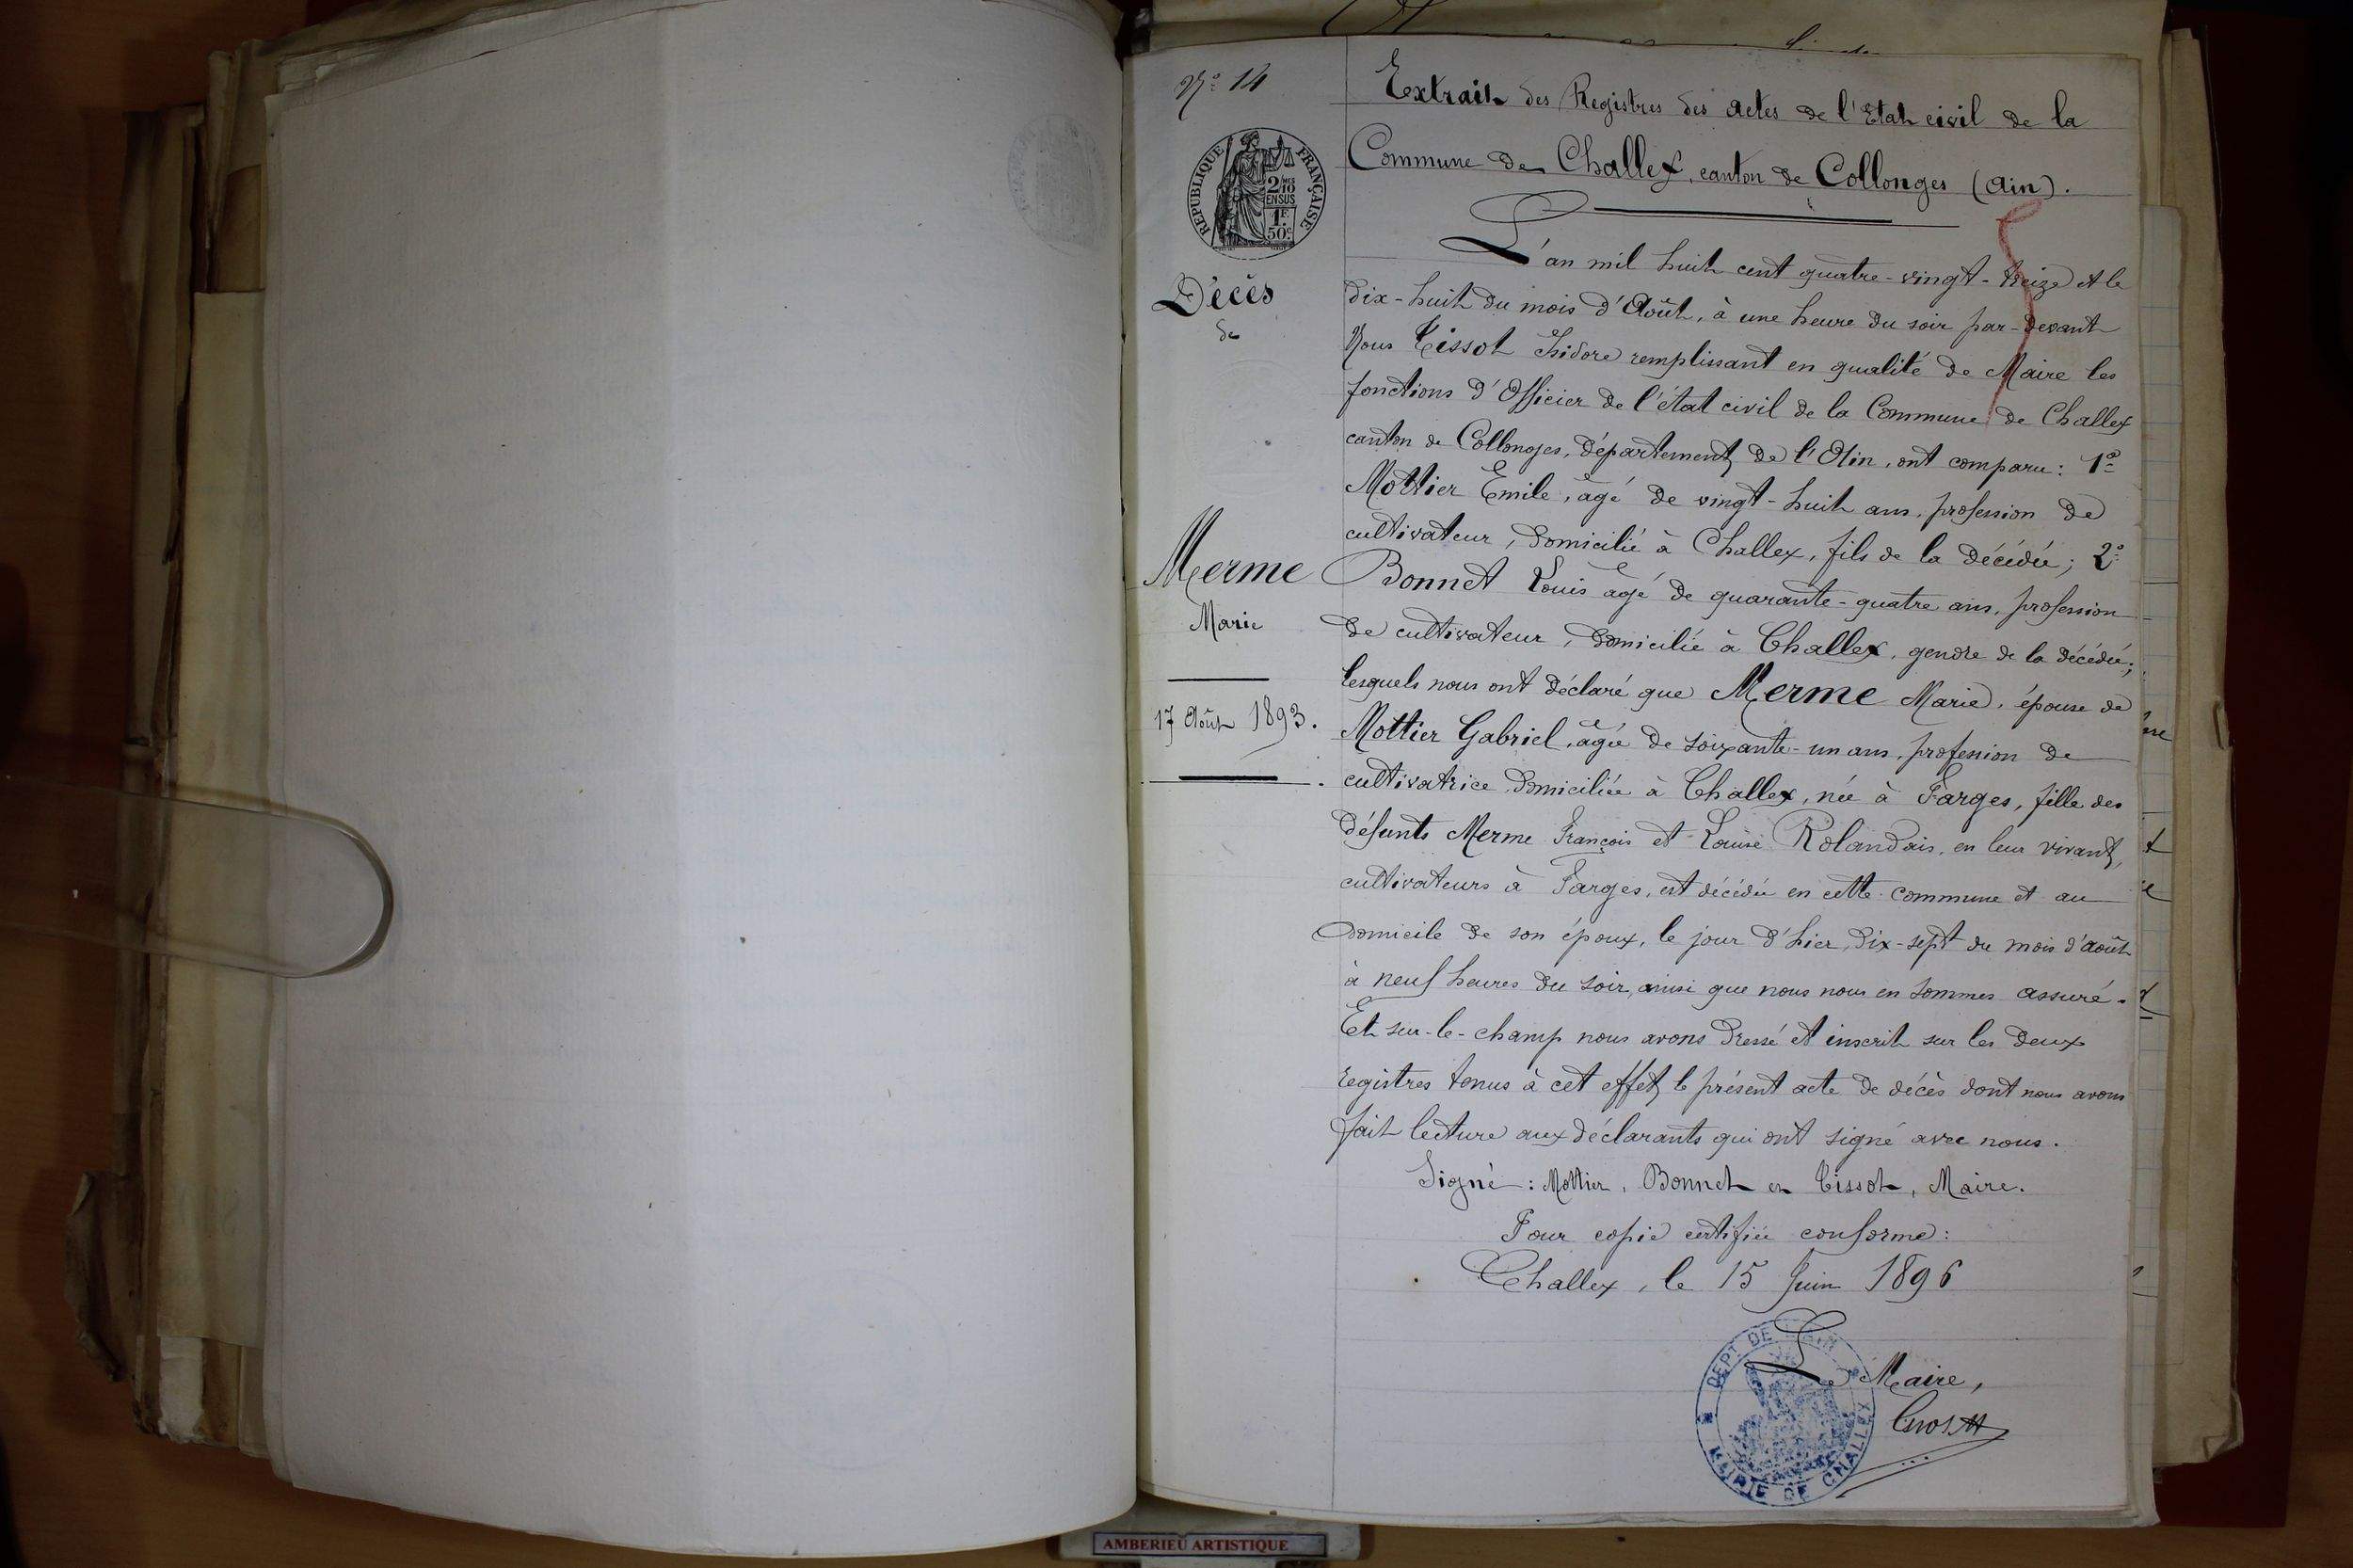 N° 14
Extrait des Registres des actes de l'Etat civil de la
Commune de Challex, canton de Collonges (Ain).
REPUBLIQUE FRANÇAISE
2/10 MES
EN SUS
1F.
50c.
Décès
de
Merme
Marie
17 Août 1893.
L'an mil huit cent quatre-vingt-treize et le
dix-huit du mois d'Août, à une heure du soir par-devant
Nous Tissot Isidore remplissant en qualité de Maire les
fonctions d'Officier de l'état civil de la Commune de Challex
canton de Collonges, département de l'Ain, ont comparu: 1°
Mottier Emile, âgé de vingt-huit ans, profession de
cultivateur, domicilié à Challex, fils de la décédée; 2°
Bonnet Louis âgé de quarante-quatre ans, profession
de cultivateur, domicilié à Challex, gendre de la décédée;
lesquels nous ont déclaré que Merme Marie, épouse de
Mottier Gabriel, âgée de soixante-un ans, profession de
cultivatrice, domiciliée à Challex, née à Farges, fille des
défunts Merme François et Louise Rolandais, en leur vivant,
cultivateurs à Farges, est décédée en cette commune et au
domicile de son époux, le jour d'hier, dix-sept du mois d'août
à neuf heures du soir, ainsi que nous nous en sommes assuré.
Et sur-le-champ nous avons dressé et inscrit sur les deux
registres tenus à cet effet, le présent acte de décès dont nous avons
fait lecture aux déclarants qui ont signé avec nous.
Signé: Mottier, Bonnet et Tissot, Maire.
Pour copie certifiée conforme:
Challex, le 15 Juin 1896
Le Maire,
DEPT. DE L'AIN
MAIRIE DE CHALLEX
AMBERIEU ARTISTIQUE